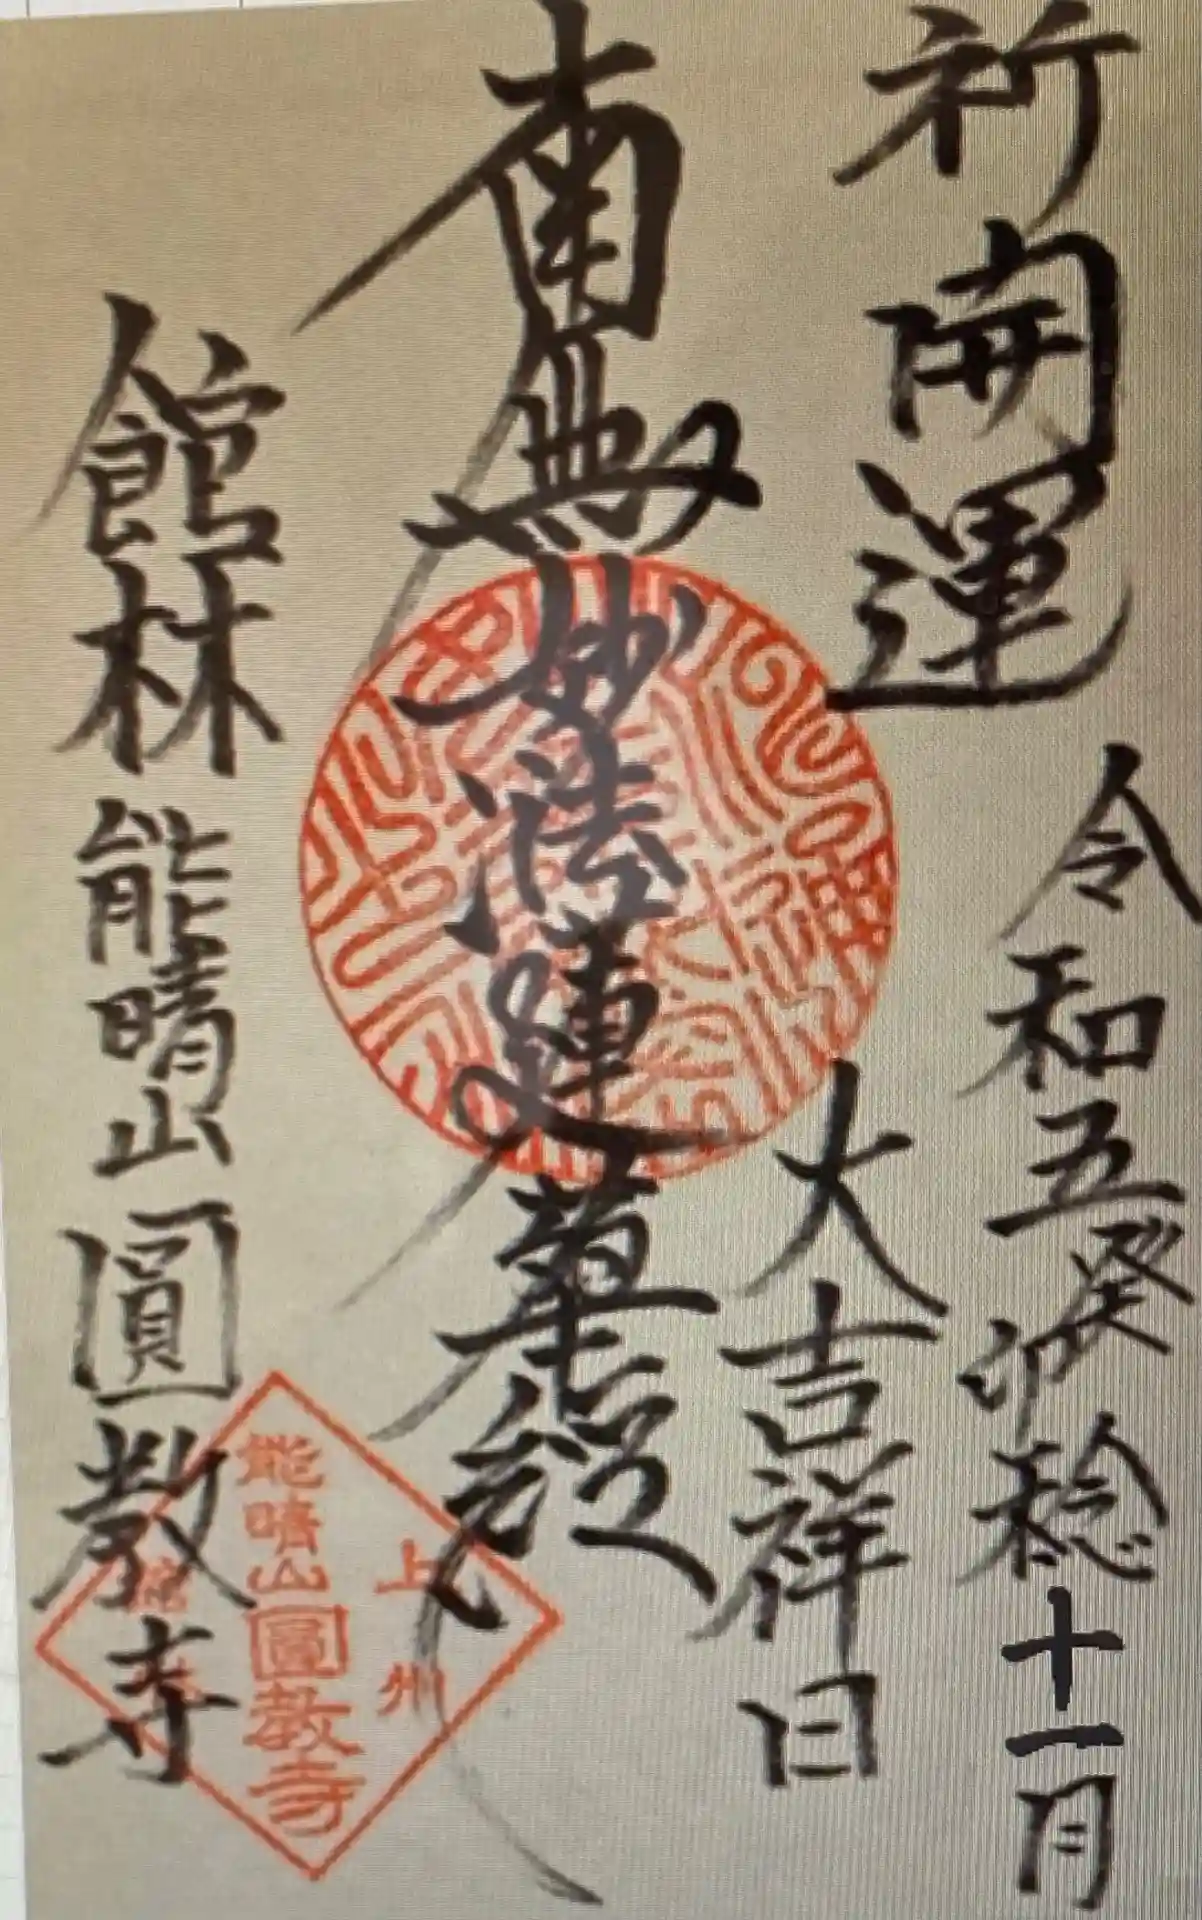 祈開運
令和五癸卯稔十一月
大吉祥日
南無妙法蓮華経
館林能晴山圓教寺
上州
能晴山圓教寺
館